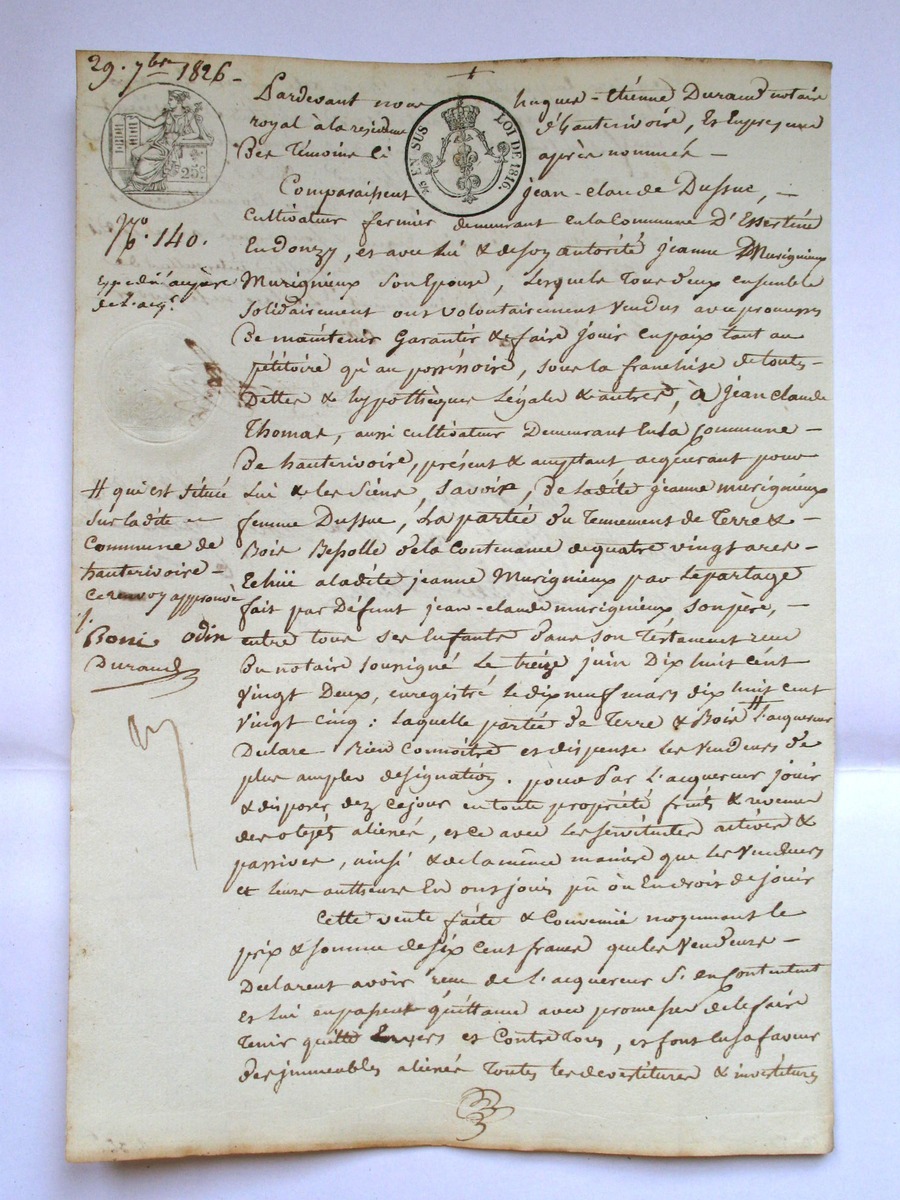 29. 7bre 1826 -
Pardevant nous hugues - Étienne Durand notaire
royal à la residence d'hauterivoire, Et En presence
Des Témoins Ci après nommés -
25c
28 EN SUS LOI DE 1816.
Comparaissent jean-claude Dussuc, -
Cultivateur fermier demeurant en la Commune D'Essertine
No. 140.
En donzy, et avec lui & de son autorité jeanne Murignieux
Murignieux son Epouse, Lesquels Tous deux ensemble
Solidairement ont volontairement Vendus avec promesses
De maintenir Garantir & faire jouir en paix tant au
pétitoire qu'au possessoire, sous la franchise de toutes
Dettes & hypothèques Légales & autres, à jean claude
Thomas, aussi cultivateur Demeurant en la Commune -
De hauterivoire, présent & acceptant, acquerant pour
Lui & les Siens, Savoir, De ladite jeanne murignieux
femme Dussuc, La partie du Tennement de Terre & -
Bois Bessolle de la Contenance de quatre vingt ares -
Echüe a ladite jeanne Murignieux par Le partage
fait par Défunt jean-claude murignieux son père, -
entre tous ses Enfants dans son Testament reçu
Du notaire soussigné Le treize juin Dix huit cent
vingt Deux, enregistré le dix neuf mars dix huit cent
vingt cinq : laquelle partie de Terre & Bois # L'acquereur
Declare Bien Connoître et dispense les vendeurs de
plus ample designation. pour Par L'acquereur jouir
& disposer dez ce jour en toute propriété fruits & revenus
des objets alienés, et ce avec les servitudes actives &
passives, ainsi & de la même manière que les Vendeurs
et leurs autheurs En ont joui pû ou En droit de jouir
# qui est située
sur la dite
Commune de
hauterivoire -
Ce renvoy approuvé
Boni odin
Durand
Cette vente faite & Convenüe moyennant le
prix & somme de six cent francs que les Vendeurs -
Declarent avoir reçu de L'acquereur S'en Contentent
et Lui en passent quittance avec promesse de le faire
Tenir quitte Envers et Contre Tous, et font en sa faveur
Des immeubles alienés Toutes les devestitures & investitures